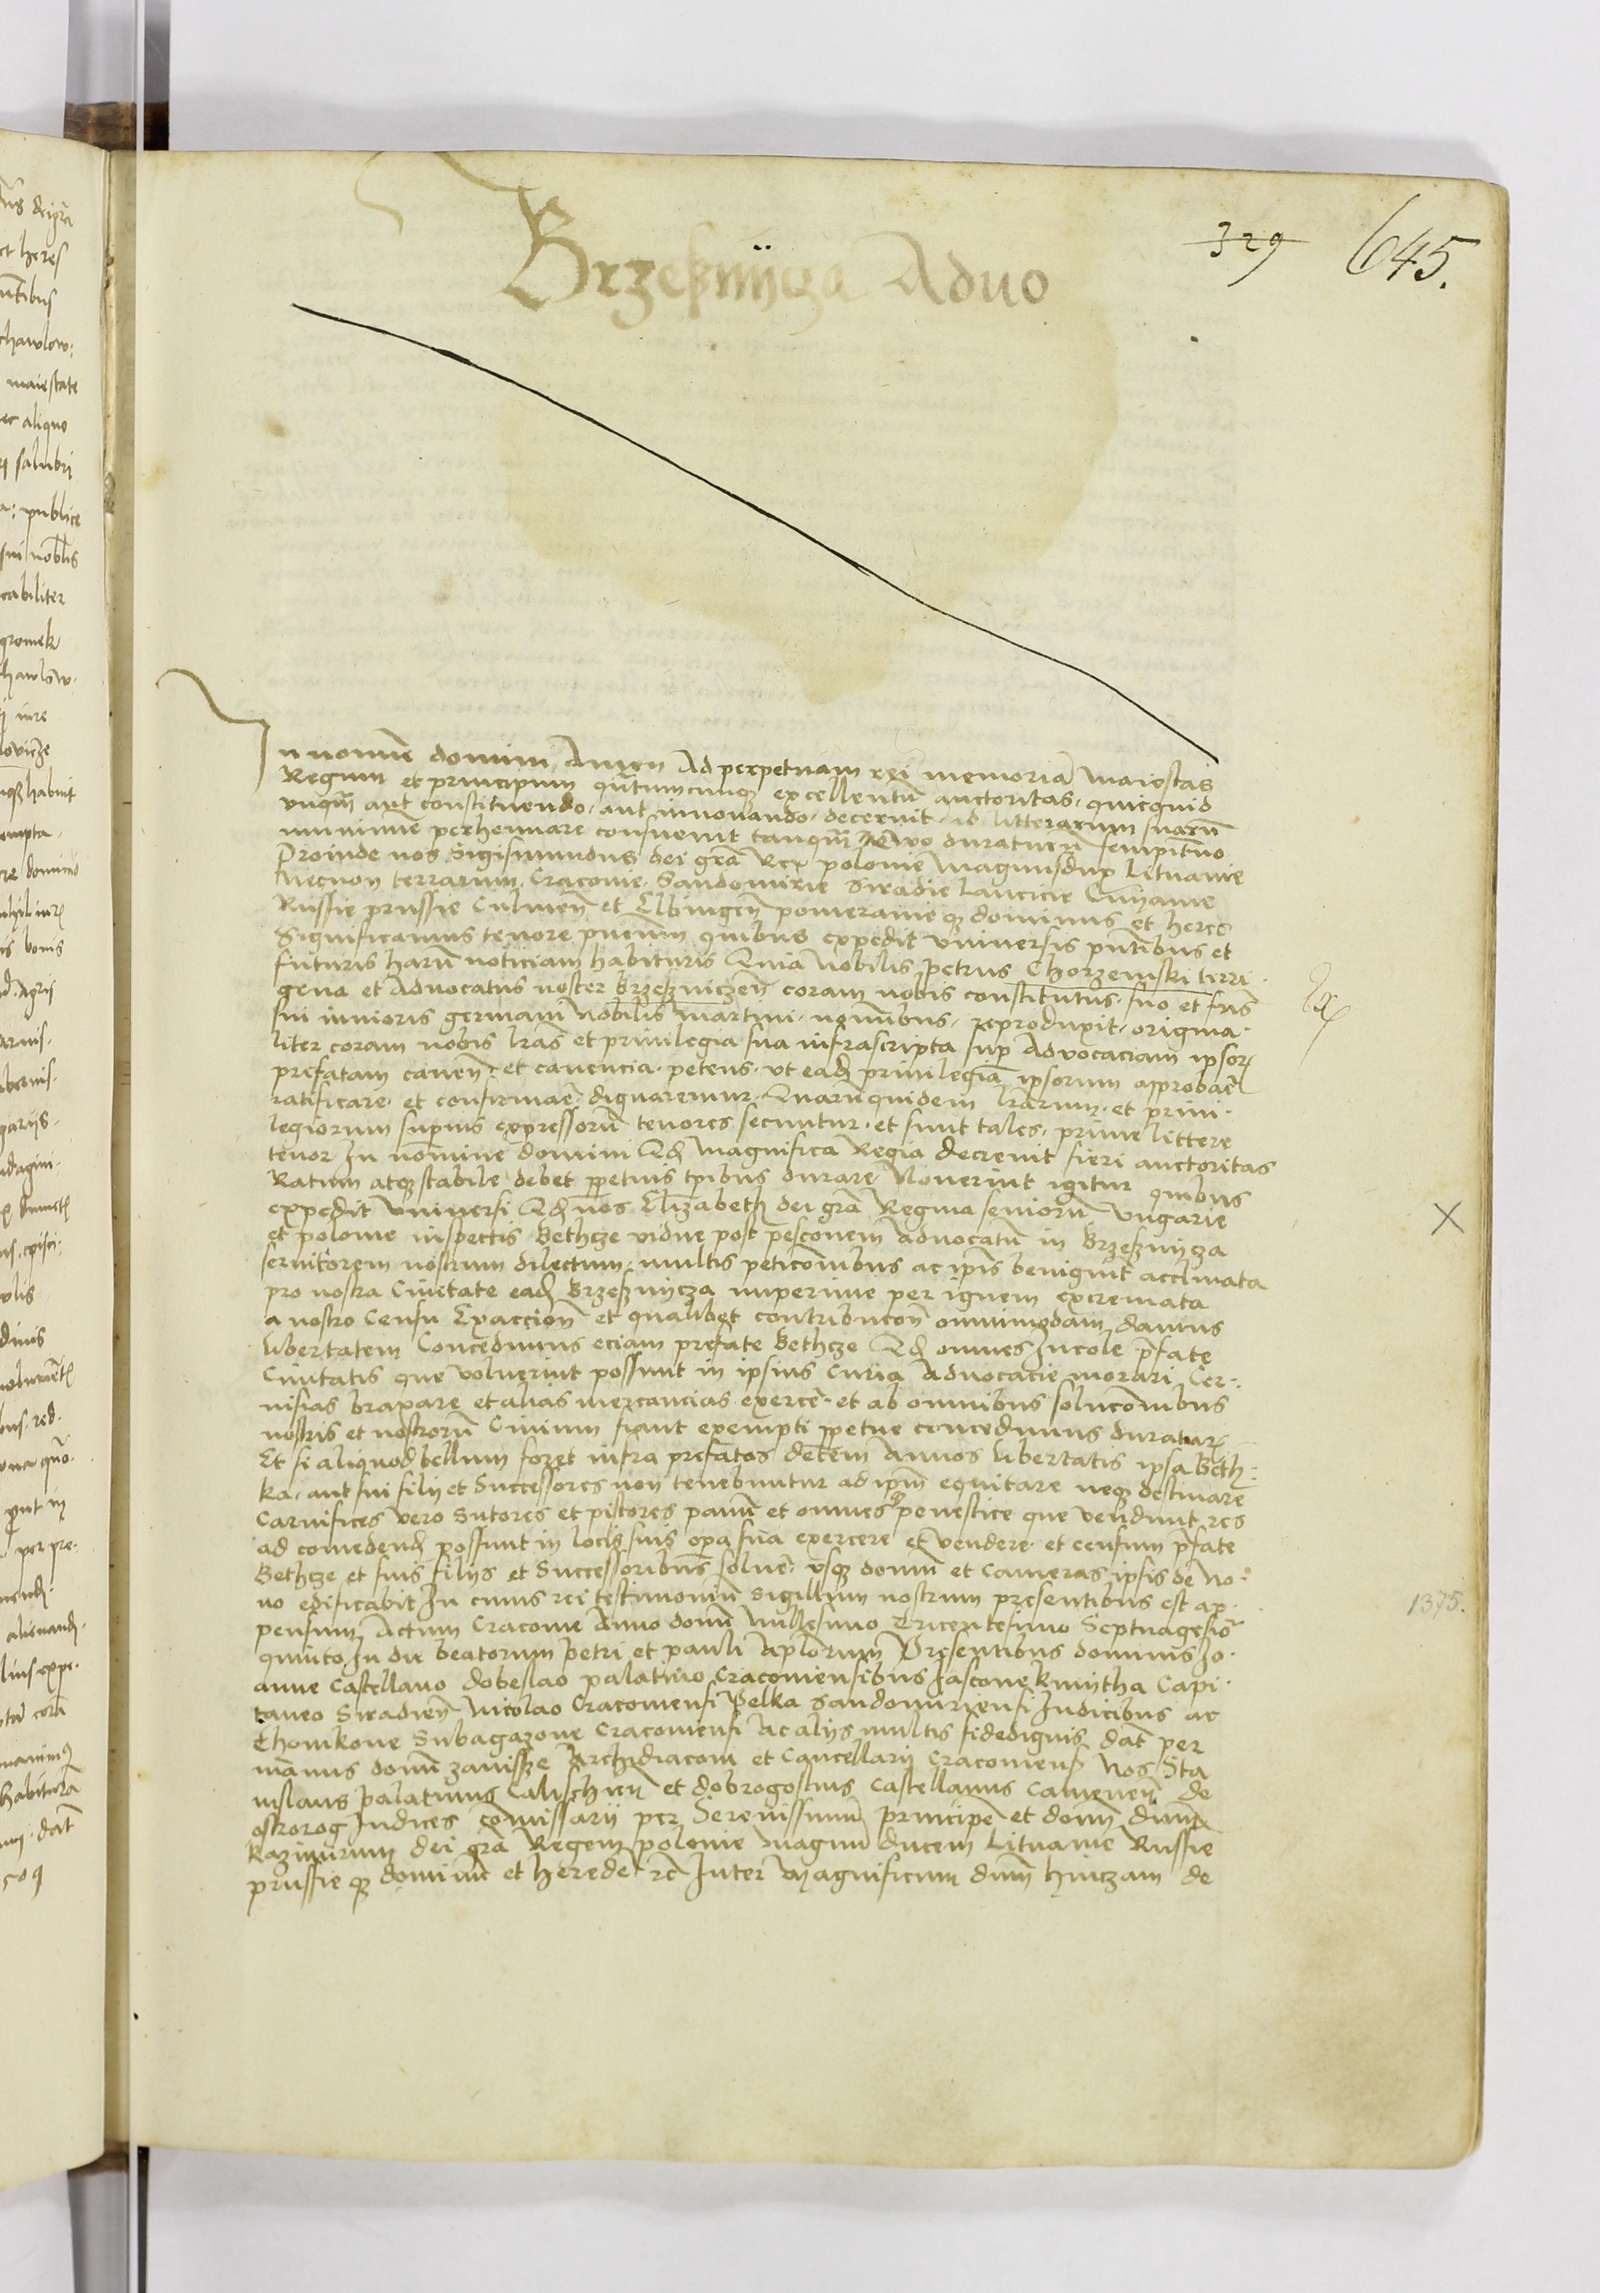 329 645.
Brzeßnÿcza Aduo
In nomine domini Amen Ad perpetuam rei memoriā Maiestas
Regum et principum qũtumcunqꝫ excellentũ auctoritas, quicquid
vnqm̃ aut constituendo, aut innouando, decernit, id litterarum suarũ
munimine perhennare consueuit tanqm̃ Aeuo duraturũ sempit̃no
Proinde nos Sigismundus dei grã Rex polonie Magnusdux Lituanie
Necnon terrarum, Cracouie, Sandomirie Siradie Lancicie Cuÿauie
Russie prussie Culmeñ et Elbingeñ pomeranie qꝫ dominus et heres
Significamus tenore pñcium quibus expedit vniuersis pñtibus et
futuris harũ noticiam habituris Quia Nobilis petrus Chorzenski terri
gena et Aduocatus noster Brzeßniczeñ coram nobis constitutus, suo et fr̃is
sui iunioris germani Nobilis Martini, nominibus, reproduxit, origina
liter coram nobis lr̃as et priuilegia sua infrascripta sup Aduocaciam ipsoꝝ
prefatam caueñ, et cauencia, petens, vt eadꝫ priuilegia ipsorum approbar̃
ratificare, et confirmar̃ dignaremur, Quarũquidem lr̃arum, et priui
legiorum superius expressorũ tenores secuntur, et sunt tales, prime littere
tenor In nomine domini Qdꝫ Magnifica Regia decreuit fieri auctoritas
Ratum atqꝫ stabile debet ꝑpetuis tp̃ibus durare Nouerint igitur quibus
expedit Vniuersi Qdꝫ nos Elizabeth dei grã Regina seniorũ Vngarie
et polonie inspectis Bethcze vidue post pesconem Aduocatũ in Brzeßnÿcza
seruitorem nostrum dilectum, multis peticõnibus ac ip̃is benignit̃ acclinata
pro nostra Ciuitate eadꝫ Brzeßnÿcza nuperime per ignem excremata
a nostro Censu Exaccioñ et qualibet contribucõñ omnimodam damus
libertatem Concedimus eciam prefate Bethcze Qdꝫ omnes Incole p̃fate
Ciuitatis que voluerint possunt in ipsius Curia Aduocacie morari, Cer
uisias braxare et alias mercancias exercẽ, et ab omnibus solucõnibus
nostris et nostrorũ Ciuium fiant exempti ꝑpetue concedimus duraturꝫ
Et si aliquod bellum foret infra prefatos decem Annos libertatis ipsa Beth
ka, aut sui filij et Successores non tenebuntur ad ip̃m equitare neqꝫ destinare
Carnifices vero Sutores et pistores panũ et omnes penestice que vendunt res
ad comedendꝫ possunt in locis suis opa sua exercere et vendere, et censum p̃fate
Bethcze et suis filijs et Successoribus soluẽ, vsqꝫ domũ et Cameras ipsis de No
uo edificabit In cuius rei testimoniũ Sigillum nostrum presentibus est ap
pensum, Actum Cracouie Anno domi Millesimo Tricentesimo Septuagesiõ
quinto In die beatorum petri et pauli Apl̃orum Presentibus dominis Jo
anne Castellano dobeslao palatino Cracouiensibus Jascone kmÿtha Capi
taneo Siradieñ Nicolao Cracouiensi pelka Sandomiriensi Iudicibus ac
Thomkone Subagazone Cracouiensi ac alijs multis fidedignis, dat̃ per
manus domi zauissze Archidiaconi et Cancellarij Cracouieñ Nos Sta
nislaus palatinus Calischieñ et dobrogostius Castellanus Cameneñ de
ostrorog Iudices Comissarij per Serenissimũ principẽ et domñ dñm
Kazimirum dei grã Regem polonie Magnũ ducem Lituanie Russie
prussie qꝫ dominũ et heredẽ ec̃ Inter Magnificum dñm hinczam de
1375.